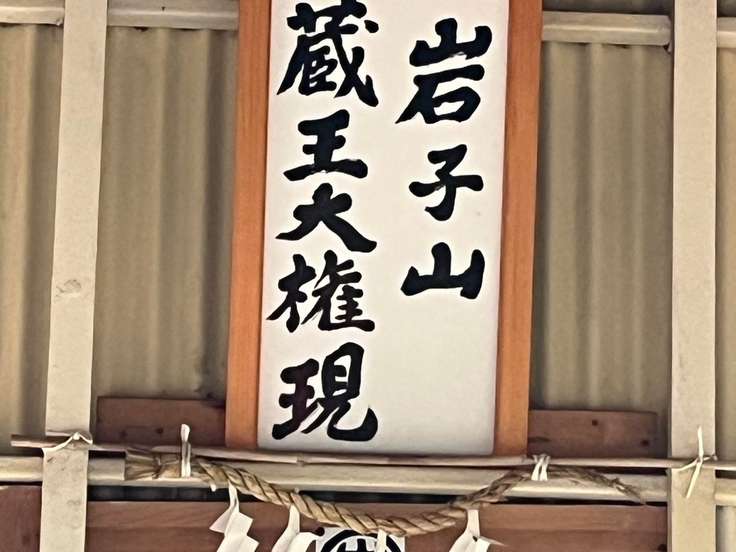 岩子山
蔵王大権現